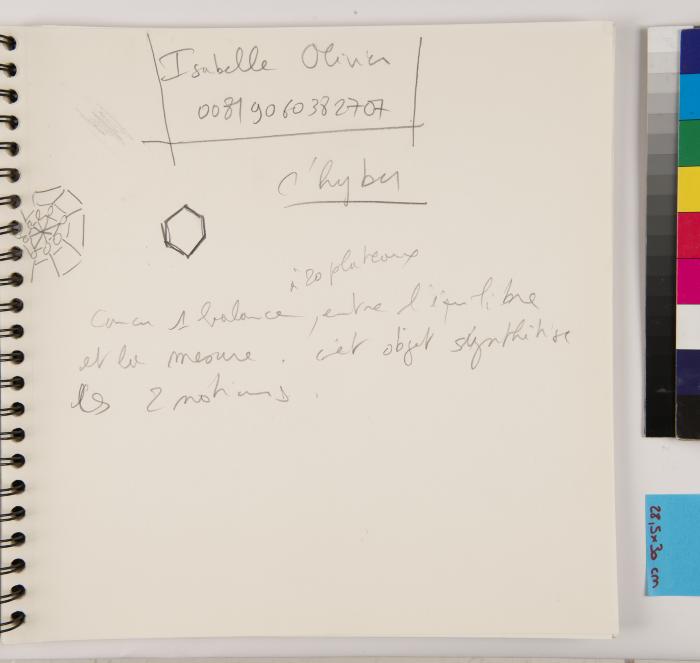 Isabelle Olivier
0081 90 60 38 2707
c'hyber
à 20 plateaux
1 balance, entre l'équilibre
et la mesure. cet objet synthétise
les 2 notions.
28,5x30 cm